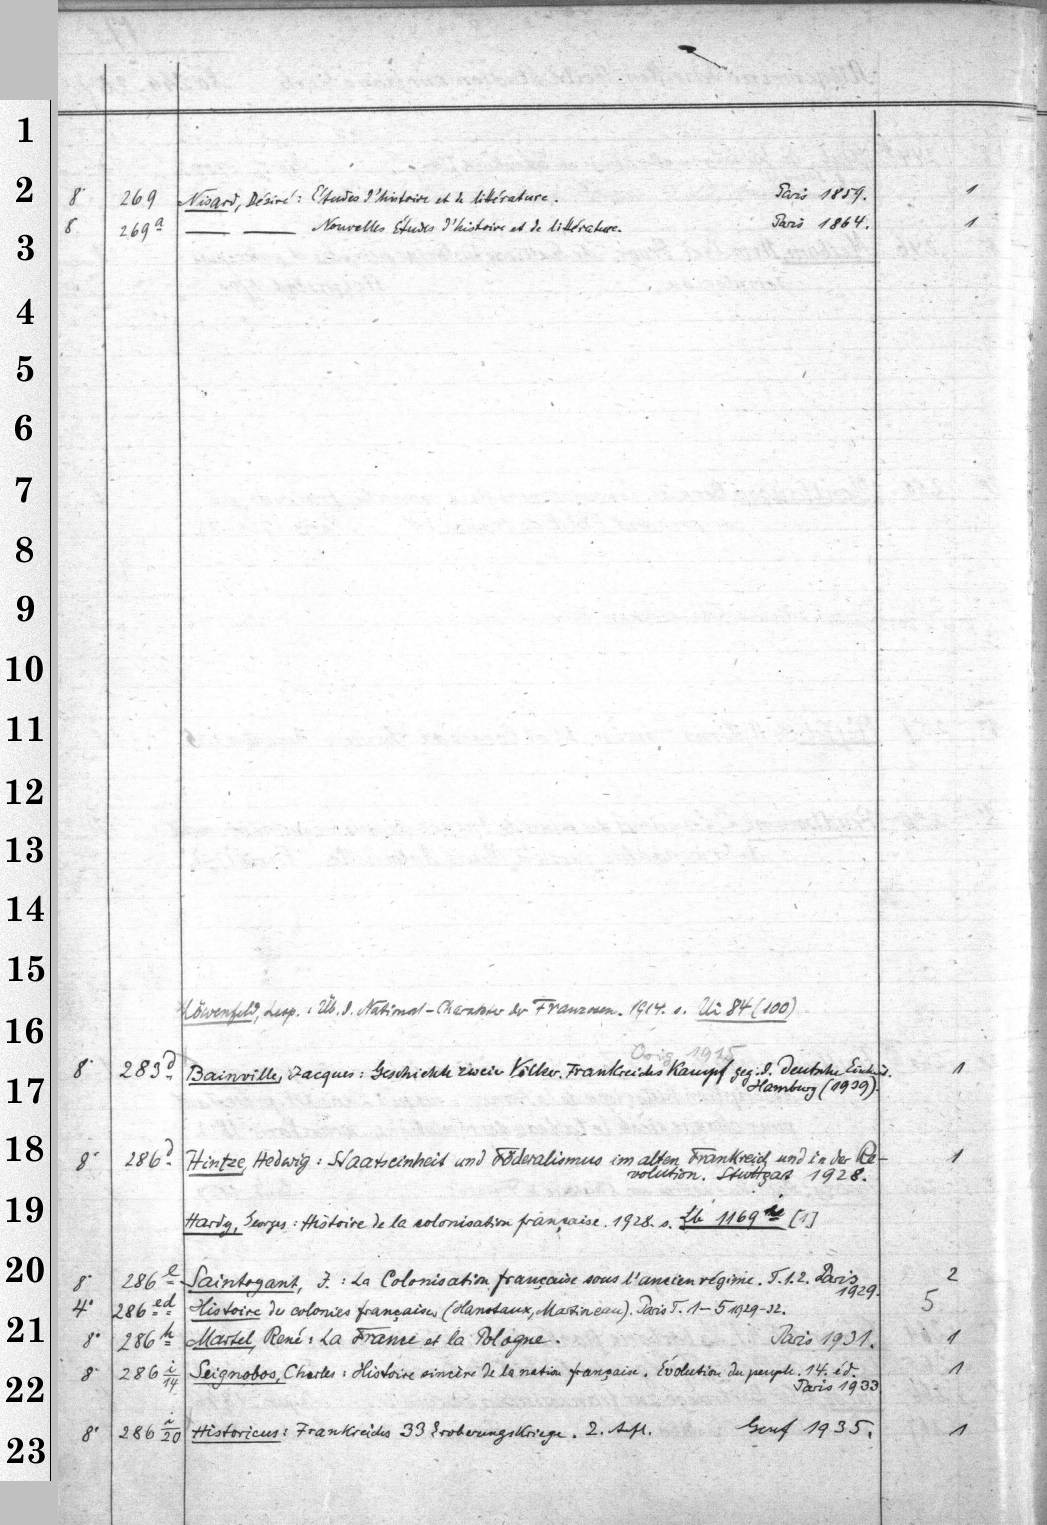 1
2
3
4
5
6
7
8
9
10
11
12
13
14
15
16
17
18
19
20
21
22
23
8° 269 Nisard, Désiré: Études d'histoire et de littérature. Paris 1859. 1
8 269a — — Nouvelles Études d'histoire et de littérature. Paris 1864. 1
Löwenfeld, Leop.: Üb. d. National-Charakter der Franzosen. 1914. s. Ui 84 (100)
Orig. 1915
8° 283d Bainville, Jacques: Geschichte zweier Völker. Frankreichs Kampf geg. d. Deutsche Einheit. 1
Hamburg (1939).
8° 286d Hintze, Hedwig: Staatseinheit und Föderalismus im alten Frankreich und in der Re- 1
volution. Stuttgart 1928.
Hardy, Georges: Histoire de la colonisation française. 1928. s. 1169 [1]
8° 286e Saintoyant, J.: La Colonisation française sous l'ancien régime. T. 1.2. Paris 2
1929.
4° 286ed Histoire des colonies françaises (Hanotaux, Martineau). Paris T. 1-5 1929-32. 5
8° 286h Martel, René: La France et la Pologne. Paris 1931. 1
8° 286 i/14 Seignobos, Charles: Histoire sincère de la nation française. Évolution du peuple. 14. éd. 1
Paris 1933
8° 286 i/20 Historicus: Frankreichs 33 Eroberungskriege. 2. Aufl. Genf 1935. 1